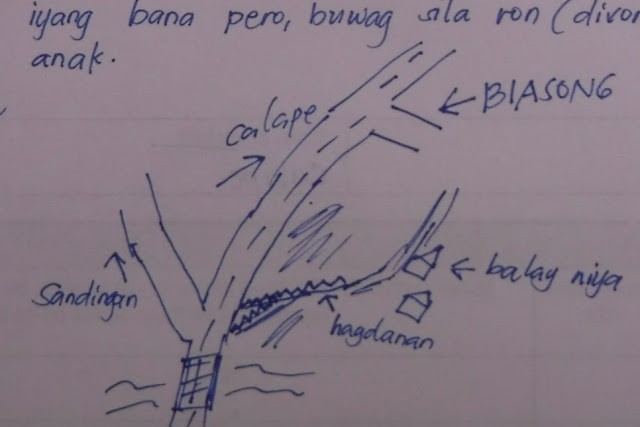 iyang bana pero, buwag sila ron (divor
anak.
calape
BIASONG
Sandingan
balay niya
hagdanan